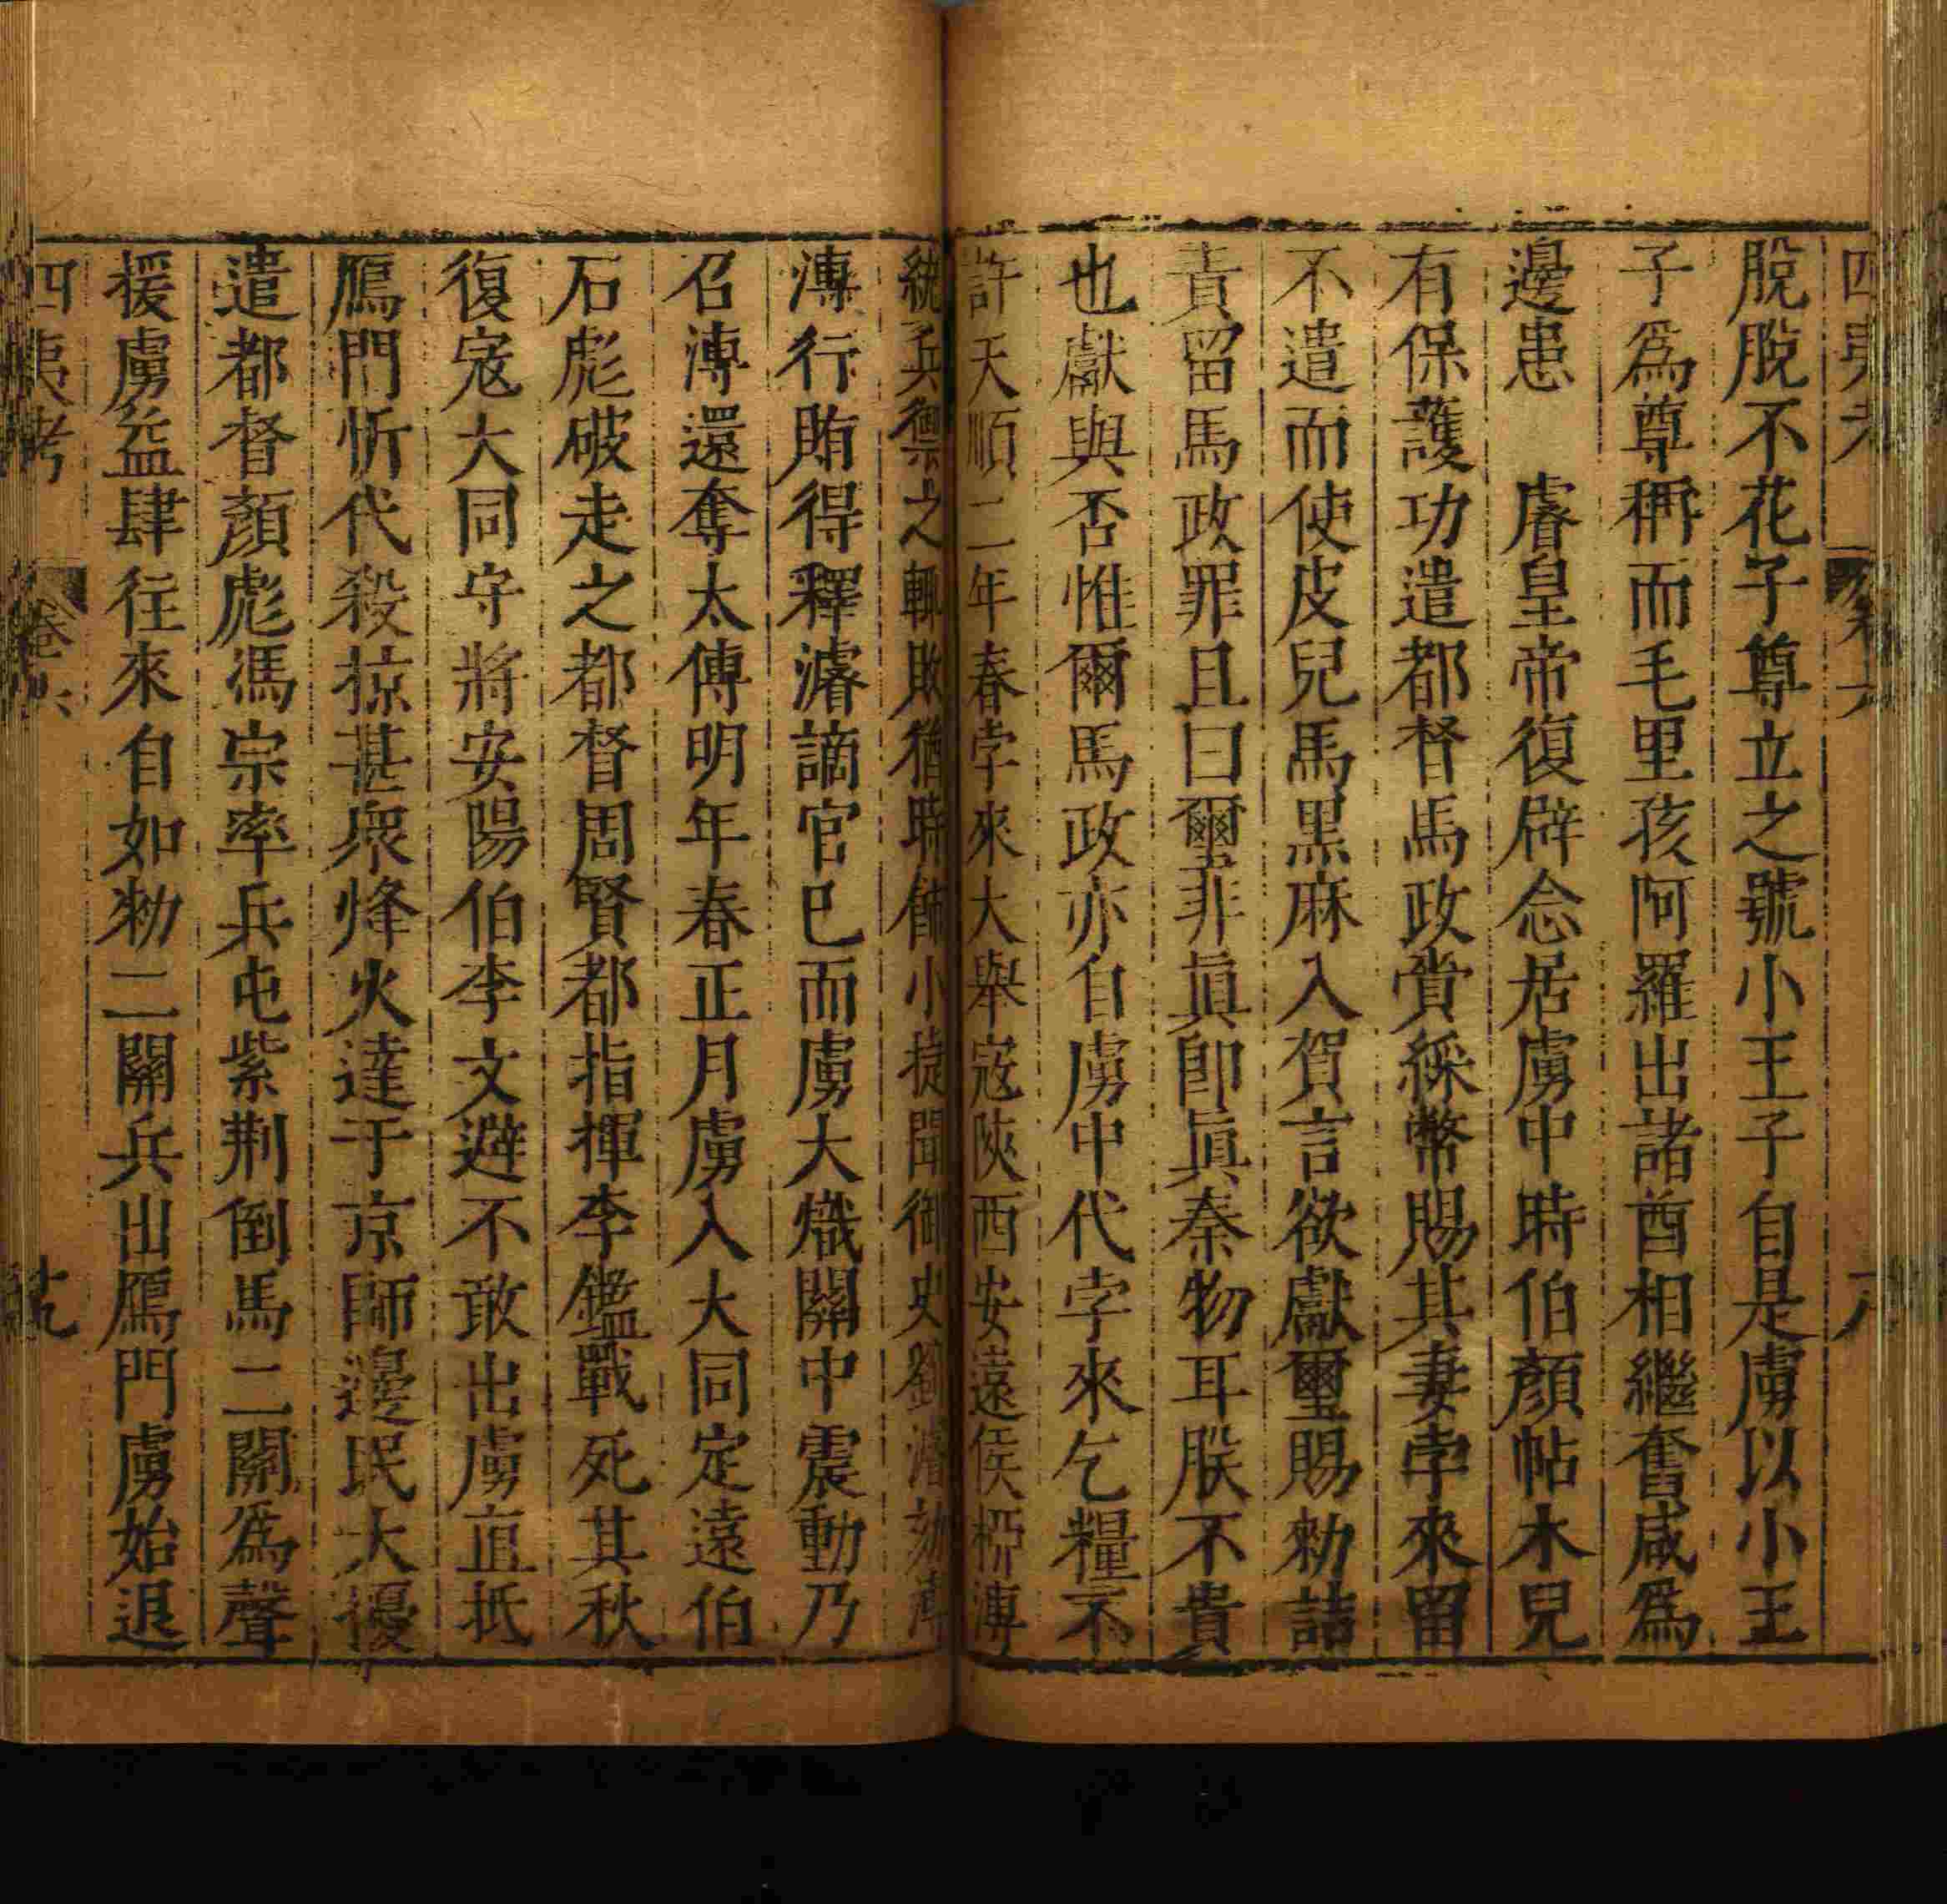 四夷考 卷六 十八
脫脫不花子尊立之號小王子自是虜以小王
子爲尊稱而毛里孩阿羅出諸酋相繼奮咸爲
邊患　睿皇帝復辟念居虜中時伯顏帖木兒
有保護功遣都督馬政賞綵幣賜其妻孛來留
不遣而使皮兒馬黑麻入賀言欲獻璽賜勑詰
責留馬政罪且曰璽非眞卽眞秦物耳朕不貴
也獻與否惟爾馬政亦自虜中代孛來乞糧不
許天順二年春孛來大舉寇陝西安遠侯柳溥
統兵禦之輒敗猶時飾小捷聞御史劉濬劾溥
溥行賄得釋濬謫官已而虜大熾關中震動乃
召溥還奪太傅明年春正月虜入大同定遠伯
石彪破走之都督周賢都指揮李鑑戰死其秋
復寇大同守將安陽伯李文避不敢出虜直抵
鴈門忻代殺掠甚衆烽火達于京師邊民大擾
遣都督顏彪馮宗率兵屯紫荆倒馬二關爲聲
援虜益肆往來自如勑二關兵出鴈門虜始退
四夷考 卷六 十九